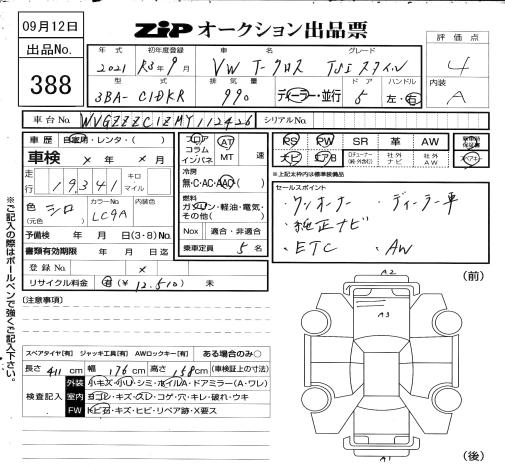 09月12日
ZIP オークション出品票
出品No.
388
年式 初年度登録 車名 グレード
2021 R3年9月 VW T-クロス TSI スタイル
型式 排気量 ドア ハンドル
3BA-C1DKR 990 ディーラー・並行 5 左・右
評価点
4
内装
A
車台No. WVGZZZC1ZMY112426 シリアルNo.
車歴 自家用・レンタ・( )
車検 × 年 × 月
走行 19,341 キロ マイル
色 (元色) シロ カラーNo. LC9A 内装色
予備検 年 月 日(3・8)No.
書類有効期限 年 月 日迄
登録No. ×
リサイクル料金 有(¥ 12,510 ) 未
フロア コラム インパネ
AT MT 速
冷房
無・C・AC・AAC( )
燃料
ガソリン・軽油・電気・その他( )
Nox 適合・非適合
乗車定員 5 名
PS PW SR 革 AW
ナビ エアB □チューナー (純・外含む) 社外ナビ 社外AW
※上記太枠内は標準装備品
新車時保証書
スペアキー
セールスポイント
・ワンオーナー ・ディーラー車
・純正ナビ
・ETC ・AW
[注意事項]
スペアタイヤ[有] ジャッキ工具[有] AWロックキー[有] ある場合のみ○
長さ 411 cm 幅 176 cm 高さ 158 cm (車検証上の寸法)
検査記入
外装 小キズ・小U・シミ・ホイルA・ドアミラー(A・ワレ)
室内 ヨゴレ・キズ・スレ・コゲ・穴・キレ・破れ・ウキ
FW トビ石・キズ・ヒビ・リペア跡・X要ス
※ご記入の際はボールペンで強くご記入下さい。
(前)
A2
A3
A1
(後)